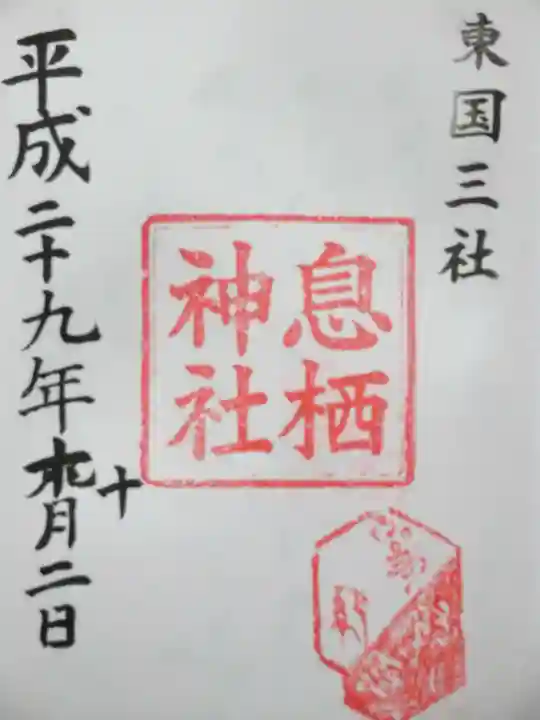 東国三社
息栖
神社
平成二十九年十月二日